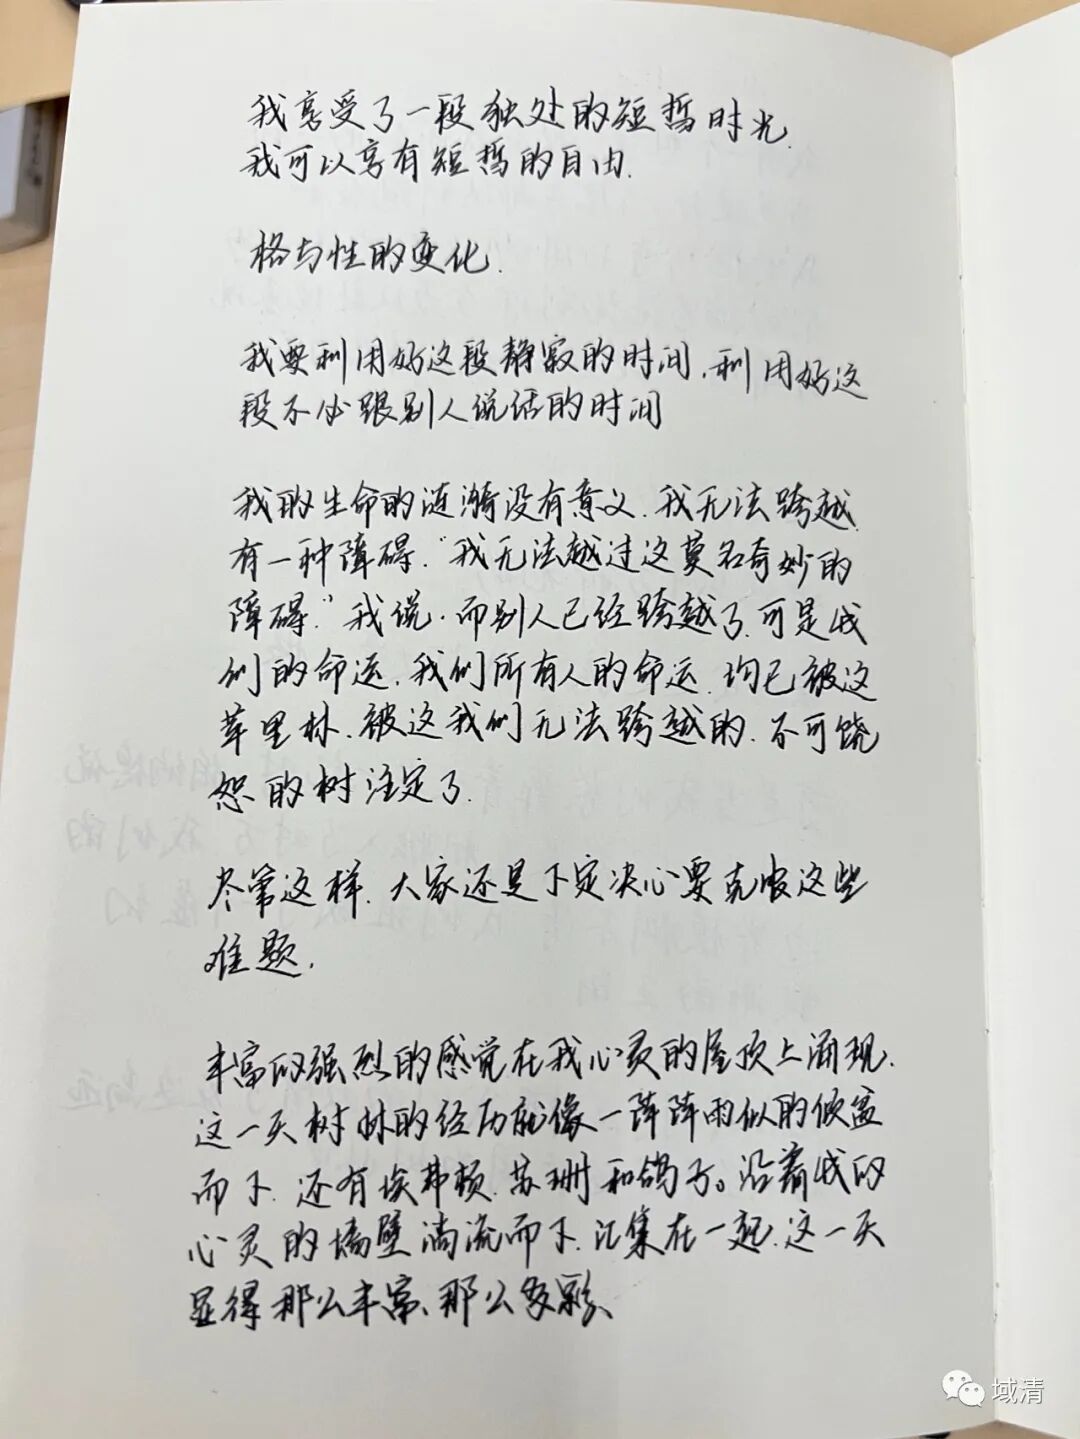 我享受了一段独处的短暂时光.
我可以享有短暂的自由.
格与性的变化.
我要利用好这段静寂的时间.利用好这
段不必跟别人说话的时间
我的生命的涟漪没有意义.我无法跨越
有一种障碍."我无法越过这莫名奇妙的
障碍."我说.而别人已经跨越了.可是我
们的命运.我们所有人的命运.均已被这
苹里林.被这我们无法跨越的.不可饶
恕的树注定了.
尽常这样.大家还是下定决心要克服这些
难题.
丰富的强烈的感觉在我心灵的屋顶上涌现.
这一天树林的经历就像一阵阵雨似的倾盆
而下.还有埃弗顿.苏珊和鸽子。沿着我的
心灵的墙壁淌流而下.汇集在一起.这一天
显得那么丰富、那么多彩、
域清